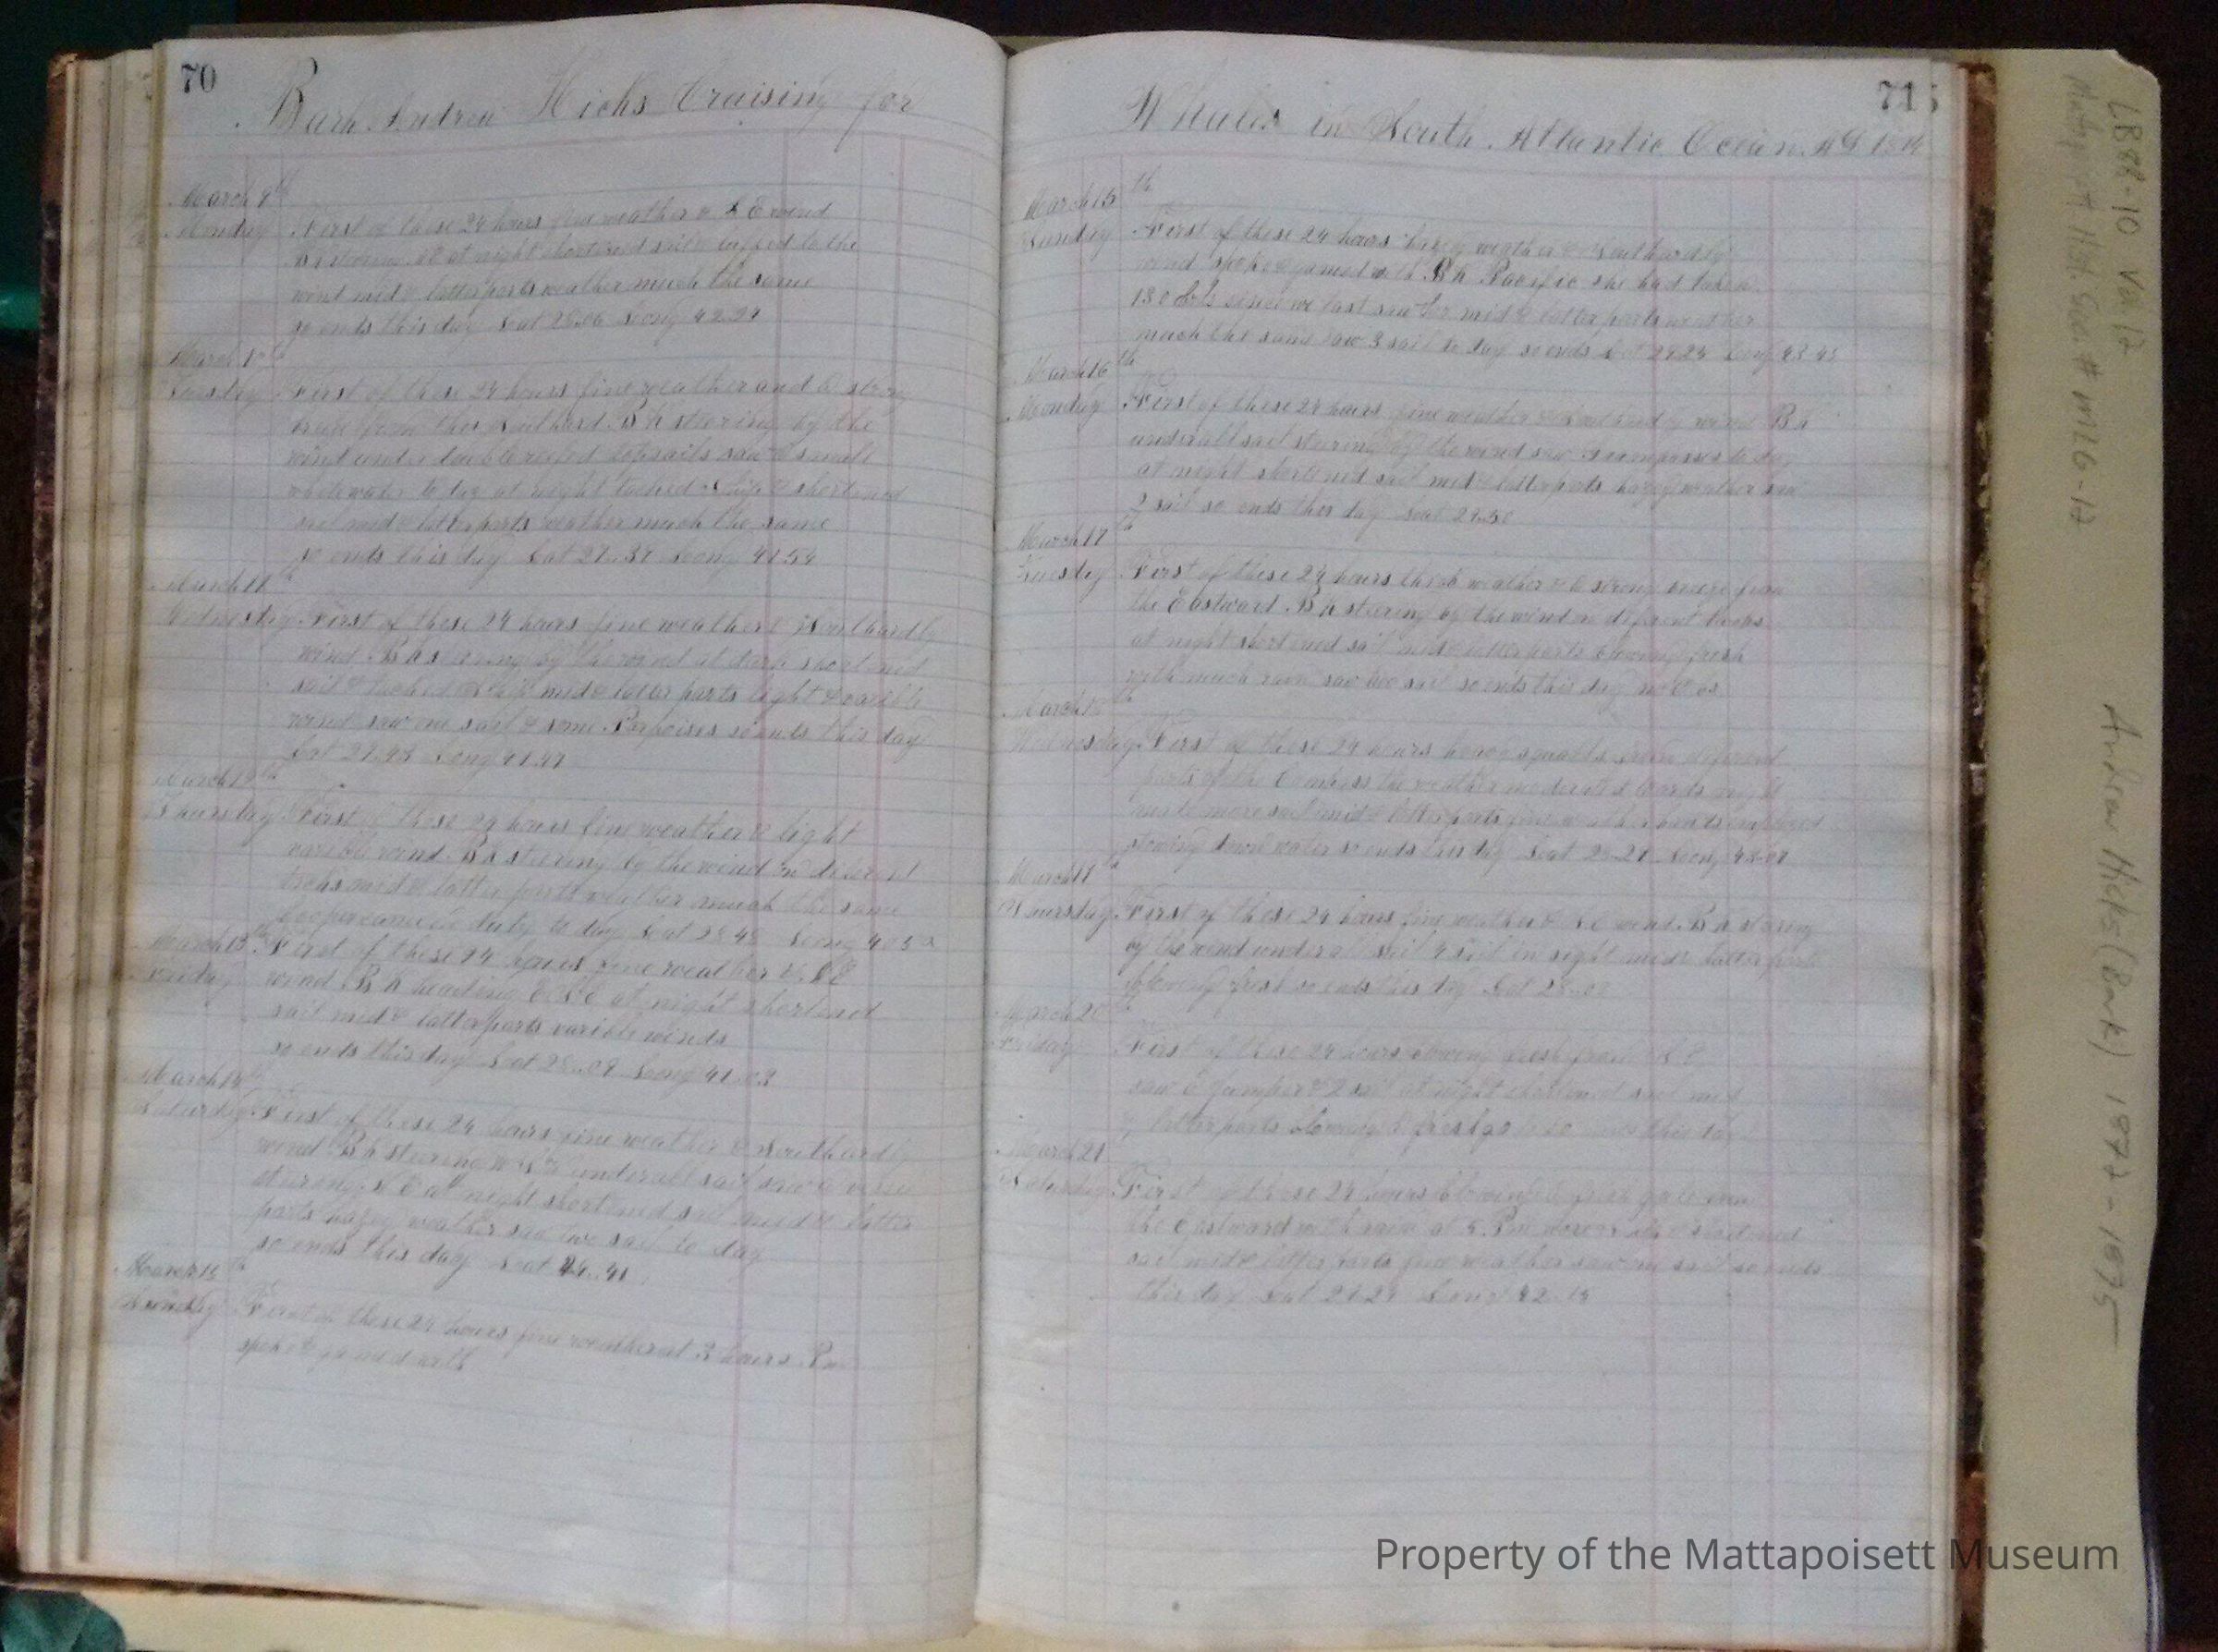 70
Bark Andrew Hicks Cruising for
March 9th
Monday First of these 24 hours fine weather & S E wind
at night shortened sail & luffed to the
wind mid & latter parts weather much the same
so ends this day Lat 28.06 Long 42.29
March 10th
Tuesday First of these 24 hours fine weather and a strong
breeze from the Southard Bk steering by the
wind under double reefed topsails saw a small
whitewater to day at night tacked ship & shortened
sail mid & latter parts weather much the same
so ends this day Lat 27..37 Long 41.54
March 11th
Wednesday First of these 24 hours fine weather & Southardly
wind Bk steering by the wind at dark shortened
sail & tacked ship mid & latter parts light & varible
winds saw one sail & some Porpoises so ends this day
Lat 27.43 Long 41.47
March 12th
Thursday First of these 24 hours fine weather & light
varible wind Bk steering by the wind on diferent
tacks mid & latter parts weather much the same
Cooper came to duty to day Lat 28 45 Long 40
March 13th First of these 24 hours fine weather & S E
Friday wind Bk heading at night shortened
sail mid & latter parts varible winds
so ends this day Lat 28..09 Long 41..03
March 14th
Saturday First of these 24 hours fine weather & Southardly
wind Bk steering under all sail saw a
at night shortened sail mid & latter
parts hazy weather saw two sail to day
so ends this day Lat 41
March 15th
Sunday First of these 24 hours fine weather at 3 hours Pm
spoke & gamed with
71
Whales in South Atlantic Ocean AD 1874
March 15th
Sunday First of these 24 hours hazy weather & Southardly
wind spoke & gamed with Bk Pacific she had taken
130 bbls since we last saw her mid & latter parts weather
much the same saw 3 sail to day so ends Lat 27 25 Long 43 45
March 16th
Monday First of these 24 hours fine weather & Southardly wind Bk
under all sail steering by the wind saw to day
at night shortened sail mid & latter parts hazy weather saw
2 sail so ends this day Lat 27..50
March 17th
Tuesday First of these 24 hours thick weather & a strong breeze from
the Eastward Bk steering by the wind on diferent tacks
at night shortened sail mid & latter parts blowing fresh
with much rain saw two sail so ends this day no obs
March 18th
Wednesday First of these 24 hours heavy squalls from diferent
parts of the Compass the weather moderated towards night
made more sail mid & latter parts fine weather hands employed
stowing down water so ends this day Lat 28..27 Long 43..07
March 19th
Thursday First of these 24 hours fine weather & S E wind Bk steering
by the wind under all sail 4 sail in sight mid & latter parts
blowing fresh so ends this day Lat 28..
March 20th
Friday First of these 24 hours blowing fresh from S E
saw a jumper & 2 sail at night shortened sail mid
& latter parts blowing a fresh gale so ends this day
March 21
Saturday First of these 24 hours blowing a fresh gale from
the Eastward with rain at 5 Pm shortened
sail mid & latter parts fine weather saw one sail so ends
this day Lat 27 27 Long 42..14
LBRR-10 Vol 17
Mattapoisett Hist. Soc. # ML6-17
Andrew Hicks (Bark) 1873-1875
Property of the Mattapoisett Museum